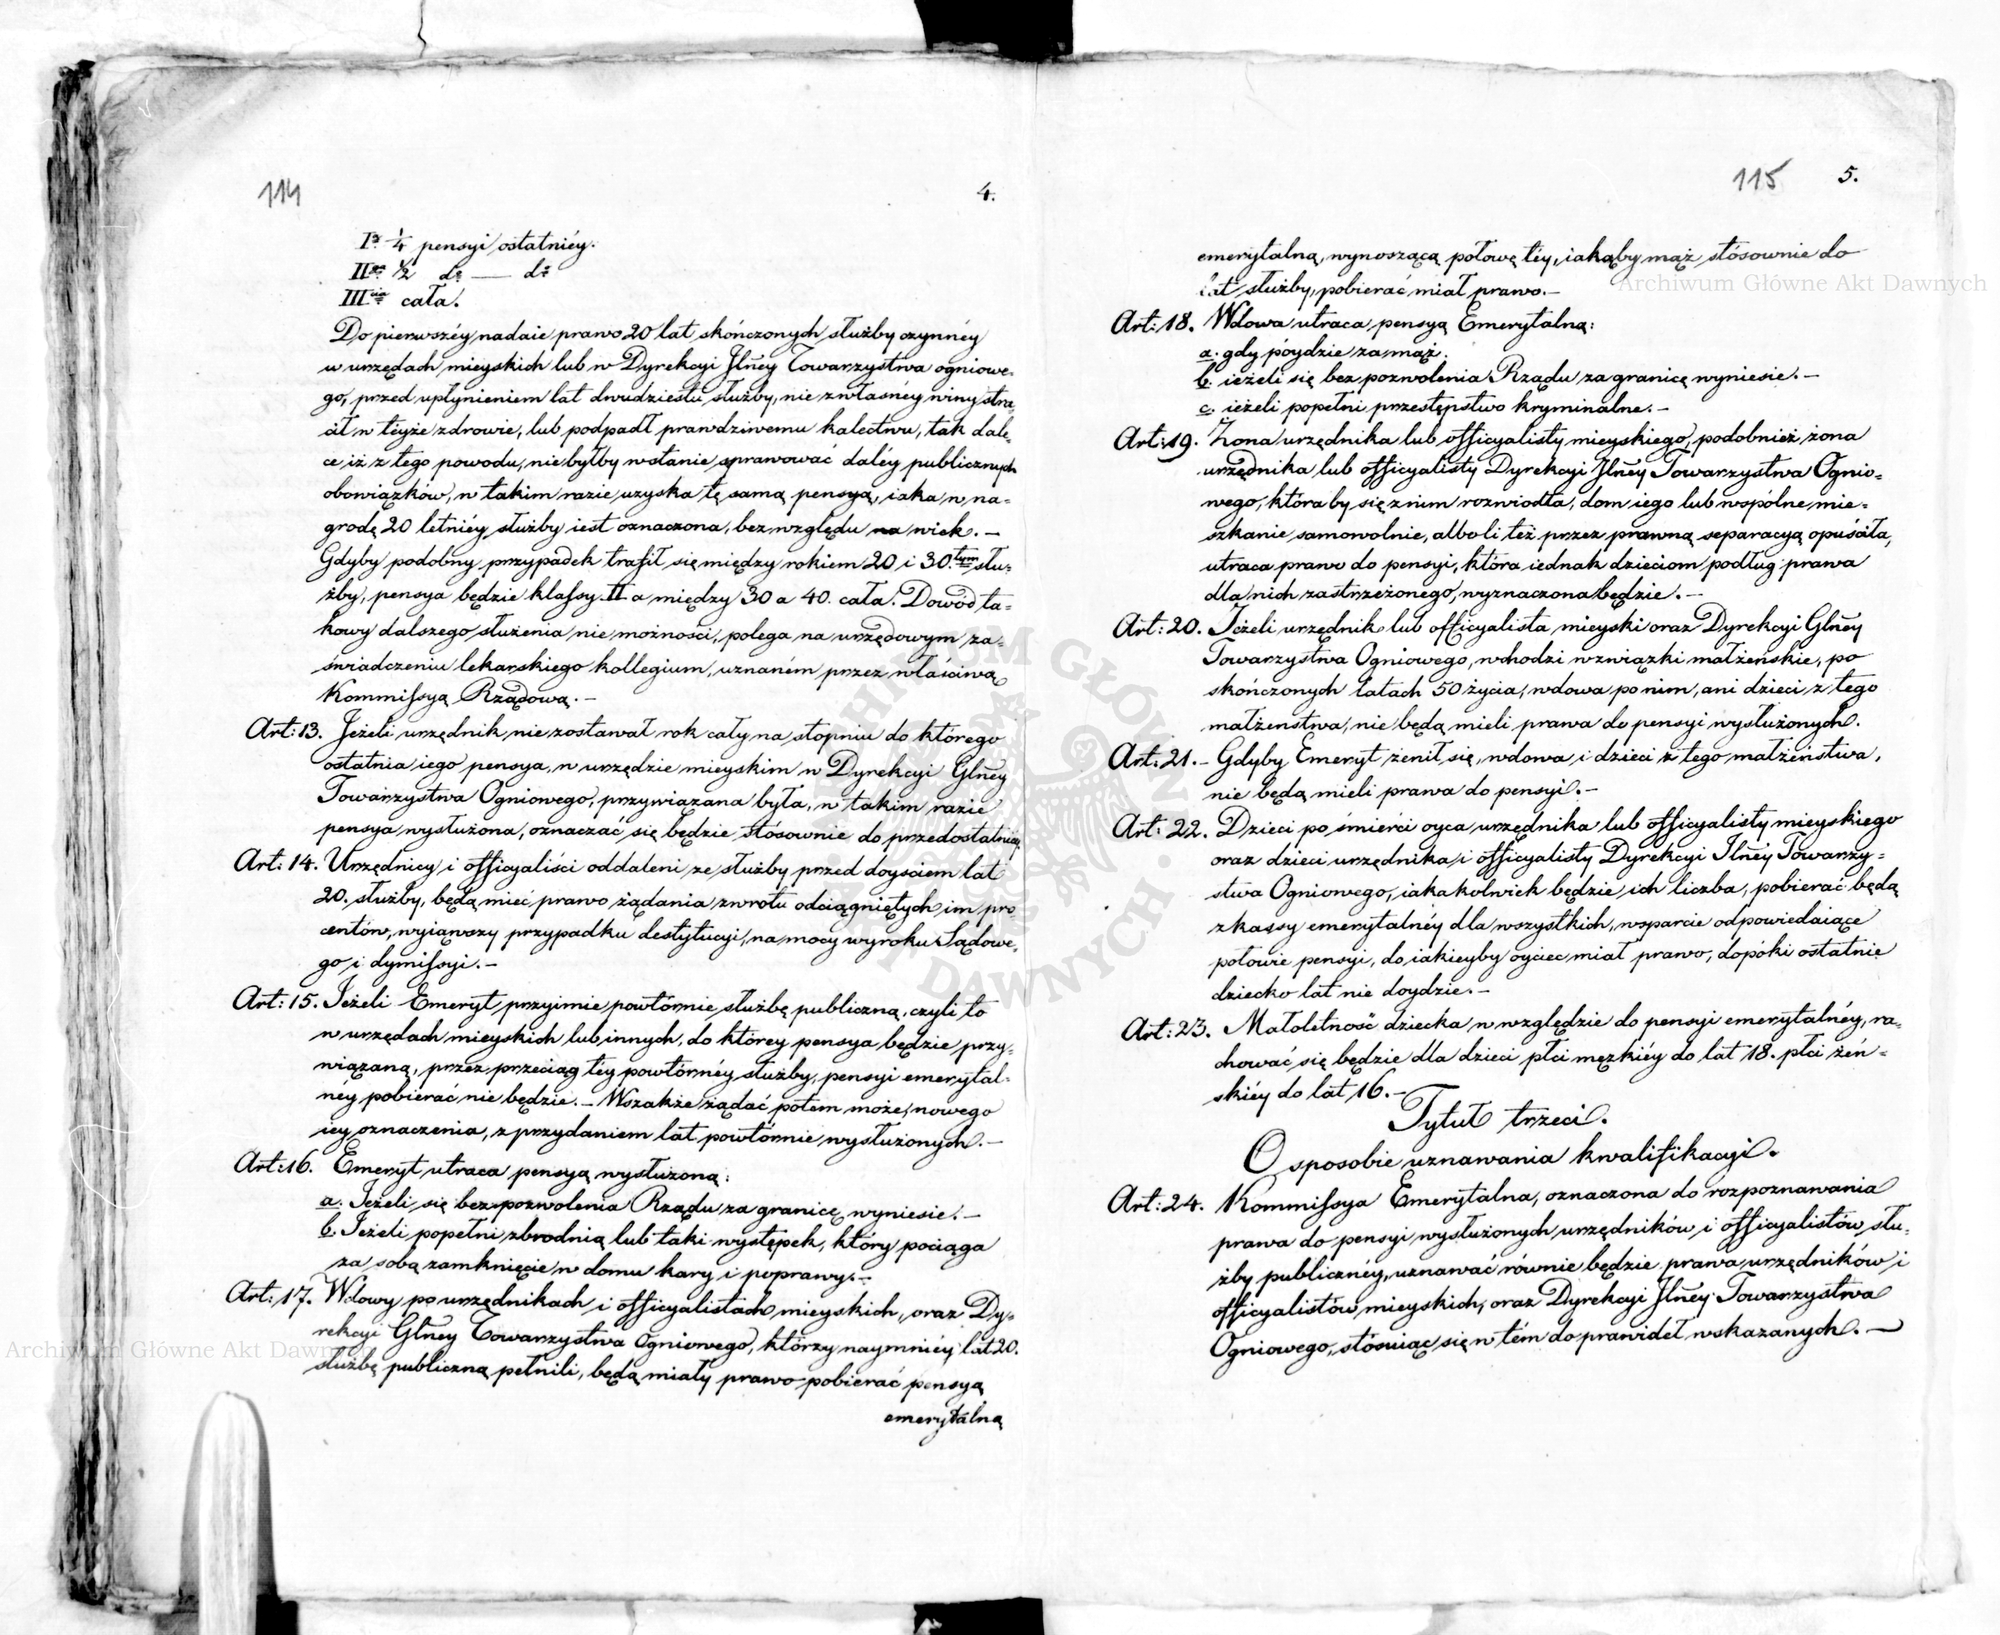 114
4.
Iª ¼ pensyi ostatniéy.
IIga ½ dº — dº
IIIcia cała.
Do pierwszéy nadaie prawo 20 lat skończonych służby czynnéy
w urzędach mieyskich lub w Dyrekcyi Jlney Towarzystwa ogniowe-
go, przed upłynieniem lat dwudziestu służby, nie z własnéy winy stra-
cił w téyże zdrowie, lub podpadł prawdziwemu kalectwu, tak dale-
ce iż z tego powodu, nie byłby w stanie sprawować daléy publicznych
obowiązków, w takim razie uzyska tę samą pensyą, iaka w na-
grodę 20 letniéy służby iest oznaczona, bez względu na wiek. —
Gdyby podobny przypadek trafił się między rokiem 20 i 30.tym słu-
żby, pensya będzie klassy II a między 30 a 40. cała. Dowód ta-
kowy dalszego służenia niemożności, polega na urzędowym za-
świadczeniu lekarskiego kollegium, uznaném przez właściwą
Kommissyą Rządową. —
Art: 13. Jeżeli urzędnik nie zostawał rok cały na stopniu do którego
ostatnia iego pensya, w urzędzie mieyskim w Dyrekcyi Glney
Towarzystwa Ogniowego, przywiązana była, w takim razie
pensya wysłużona, oznaczać się będzie stósownie do przedostatniey
Art: 14. Urzędnicy i officyaliści oddaleni ze służby przed doyściem lat
20. służby, będą mieć prawo żądania zwrotu odciągniętych im pro-
centów, wyiąwszy przypadku destytucyi, na mocy wyroku Sądowe-
go i dymissyi. —
Art: 15. Jeżeli Emeryt przyimie powtórnie służbę publiczną, czyli to
w urzędach mieyskich lub innych, do którey pensya będzie przy-
wiązaną, przez przeciąg tey powtórnéy służby, pensyi emerytal-
néy pobierać nie będzie. — Wszakże żądać potem może, nowego
iey oznaczenia, z przydaniem lat powtórnie wysłużonych. —
Art: 16. Emeryt utraca pensyą wysłużoną:
a. Jeżeli się bez pozwolenia Rządu za granicę wyniesie. —
b. Jeżeli popełni zbrodnią lub taki występek, który pociąga
za sobą zamknięcie w domu kary i poprawy. —
Art: 17. Wdowy po urzędnikach i officyalistach mieyskich, oraz Dy-
rekcyi Glney Towarzystwa Ogniowego, którzy naymniéy lat 20.
służbę publiczną pełnili, będą miały prawo pobierać pensyą
emerytalną
115
5.
emerytalną, wynoszącą połowę téy, iakąby mąż stósownie do
lat służby, pobierać miał prawo. —
Art: 18. Wdowa utraca, pensyą Emerytalną:
a. gdy póydzie za mąż.
b. ieżeli się bez pozwolenia Rządu za granicę wyniesie. —
c. ieżeli popełni przestępstwo kryminalne. —
Art: 19. Żona urzędnika lub officyalisty mieyskiego, podobnież żona
urzędnika lub officyalisty Dyrekcyi Jlney Towarzystwa Ognio-
wego, która by się z nim rozwiodła, dom iego lub wspólne mie-
szkanie samowolnie, alboli też przez prawną separacyą opuściła,
utraca prawo do pensyi, która iednak dzieciom podług prawa
dla nich zastrzeżonego, wyznaczona będzie. —
Art: 20. Jeżeli urzędnik lub officyalista mieyski oraz Dyrekcyi Glney
Towarzystwa Ogniowego, wchodzi w związki małżeńskie, po
skończonych latach 50 życia, wdowa po nim, ani dzieci z tego
małżenstwa, nie będą mieli prawa do pensyi wysłużonych.
Art: 21. – Gdyby Emeryt żenił się, wdowa i dzieci z tego małżeństwa,
nie będą mieli prawa do pensyi. —
Art: 22. Dzieci po śmierci oyca urzędnika lub officyalisty mieyskiego
oraz dzieci urzędnika i officyalisty Dyrekcyi Jlney Towarzy-
stwa Ogniowego, iakakolwiek będzie ich liczba, pobierać będą
z kassy emerytalnéy dla wszystkich, wsparcie odpowiedaiące
połowie pensyi, do iakieyby oyciec miał prawo, dopóki ostatnie
dziecko lat nie doydzie. —
Art: 23. Małoletność dziecka, w względzie do pensyi emerytalnéy, ra-
chować się będzie dla dzieci płci męzkiéy do lat 18. płci żeń-
skiéy do lat 16. —
Tytuł trzeci.
O sposobie uznawania kwalifikacyi.
Art: 24. Kommissya Emerytalna, oznaczona do rozpoznawania
prawa do pensyi wysłużonych urzędników i officyalistów słu-
żby publicznéy, uznawać równie będzie prawa urzędników i
officyalistów mieyskich, oraz Dyrekcyi Jlney Towarzystwa
Ogniowego, stósuiąc się w tém do prawideł wskazanych. —
Archiwum Główne Akt Dawnych
Archiwum Główne Akt Dawnych
ARCHIWUM GŁÓWNE AKT DAWNYCH